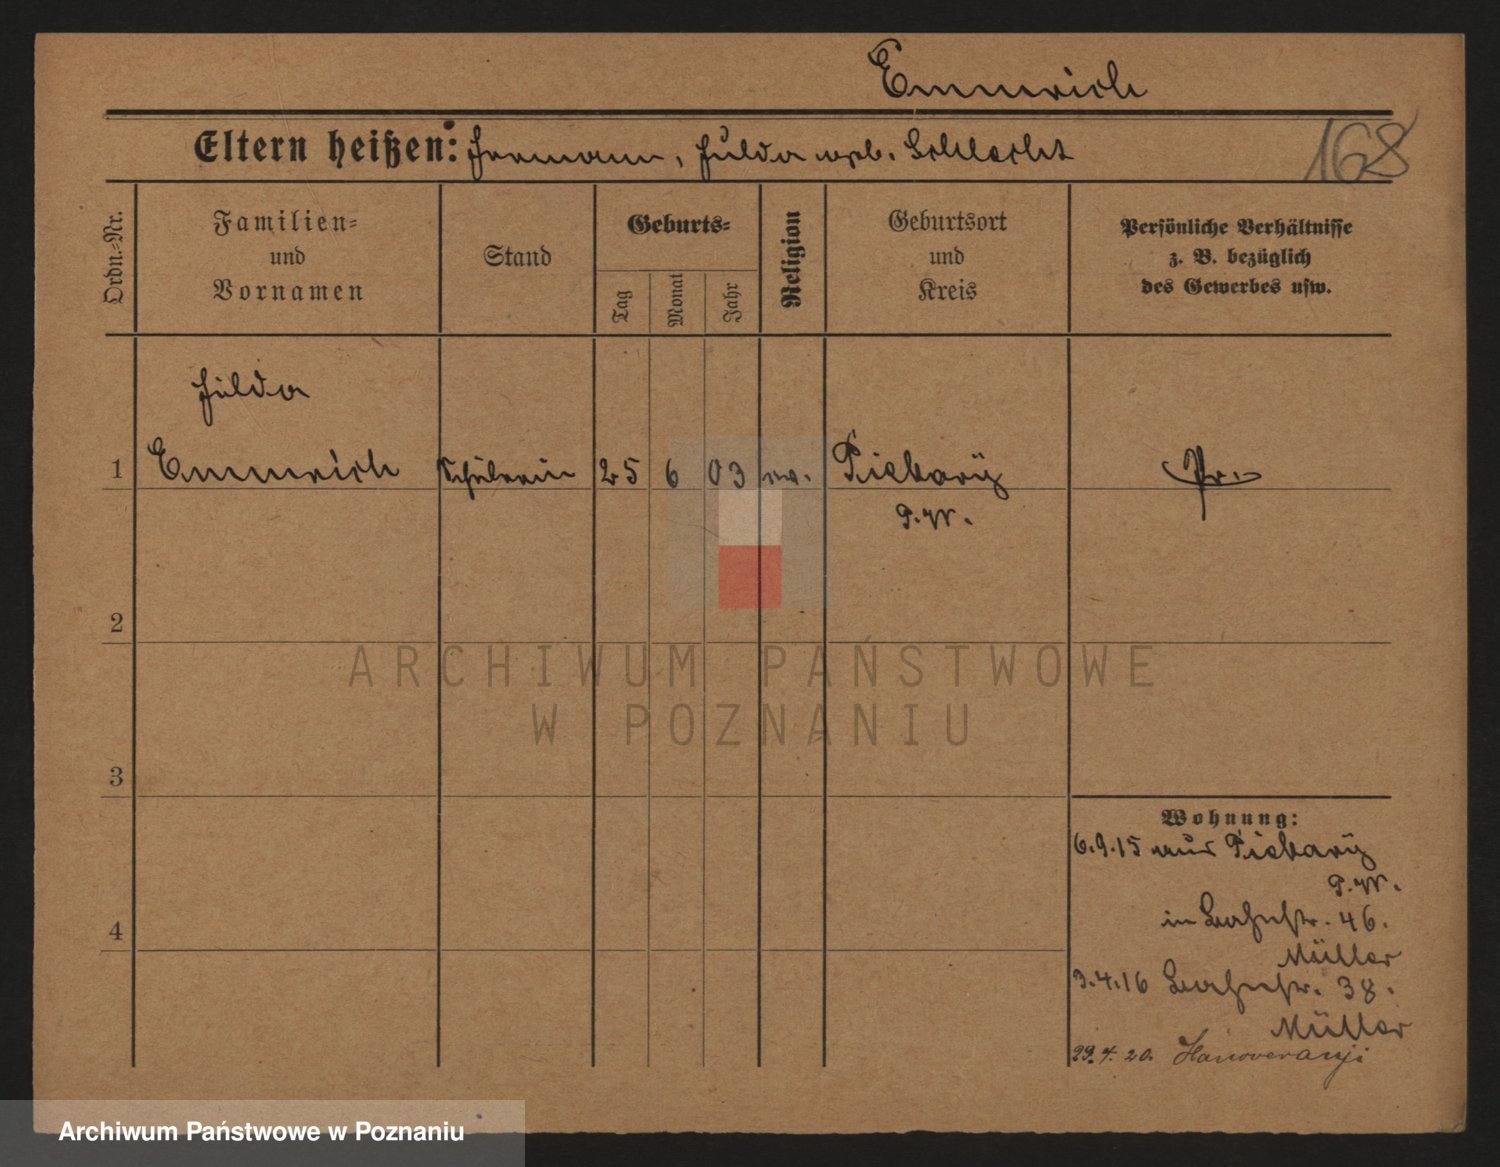 Emmrich
Eltern heißen: Hermann, Hulda geb. Schlecht
168
Ordn.-Nr.
Familien-
und
Vornamen
Stand
Geburts-
Tag
Monat
Jahr
Religion
Geburtsort
und
Kreis
Persönliche Verhältnisse
z. B. bezüglich
des Gewerbes usw.
Hulda
1 Emmrich Schülerin 25 6 03 ev. Piekary Pr.
P.W.
2
3
4
Wohnung:
6.9.15 aus Piekary
P.W.
in Bahnstr. 46.
Müller
3.4.16 Bahnstr. 38.
Müller
29.4.20.
ARCHIWUM PAŃSTWOWE
W POZNANIU
Archiwum Państwowe w Poznaniu